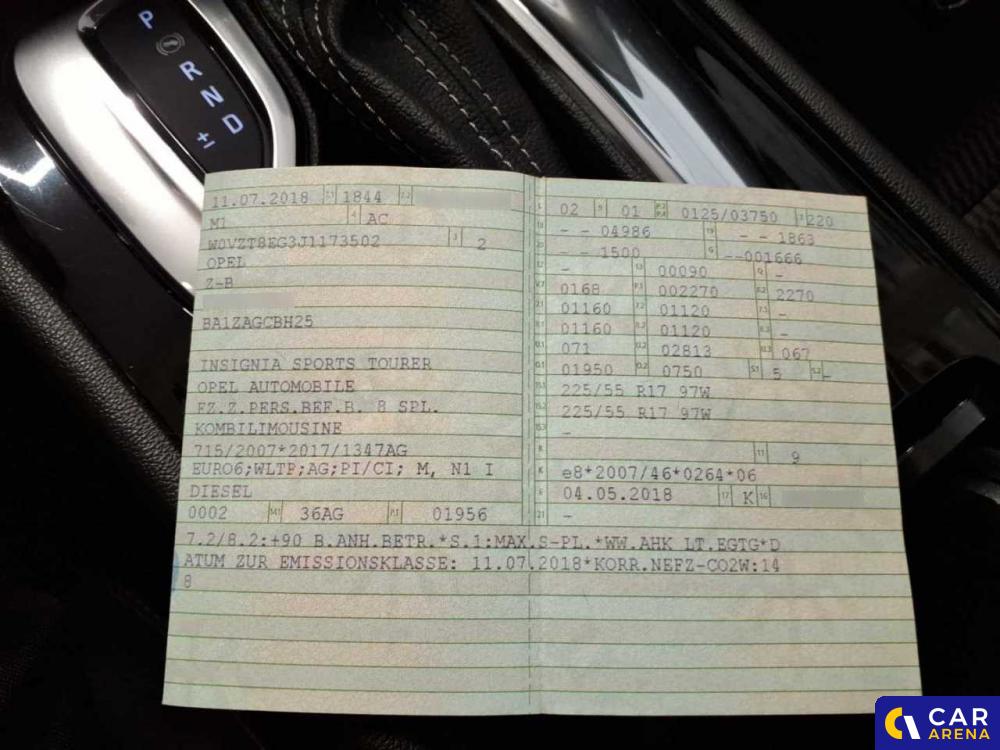 P
R
N
D
+/-
11.07.2018 2.1 1844 2.2
M1 4 AC
W0VZT8EG3J1173502 3 2
OPEL
Z-B
BA1ZAGCBH25
INSIGNIA SPORTS TOURER
OPEL AUTOMOBILE
FZ.Z.PERS.BEF.B. 8 SPL.
KOMBILIMOUSINE
715/2007*2017/1347AG
EURO6;WLTP;AG;PI/CI; M, N1 I
DIESEL
0002 14.1 36AG P.1 01956
L 02 9 01 P.2 P.4 0125/03750 T 220
18 - - 04986 19 - - 1863
20 - - 1500 G --001666
12 - 13 00090 Q -
V.7 0168 F.1 002270 F.2 2270
7.1 01160 7.2 01120 7.3 -
8.1 01160 8.2 01120 8.3 -
U.1 071 U.2 02813 U.3 067
O.1 01950 O.2 0750 S.1 5 S.2 -
15.1 225/55 R17 97W
15.2 225/55 R17 97W
15.3 -
R 11 9
K e8*2007/46*0264*06
6 04.05.2018 17 K 16
21 -
7.2/8.2:+90 B.ANH.BETR.*S.1:MAX.S-PL.*WW.AHK LT.EGTG*D
ATUM ZUR EMISSIONSKLASSE: 11.07.2018*KORR.NEFZ-CO2W:14
8
CAR
ARENA